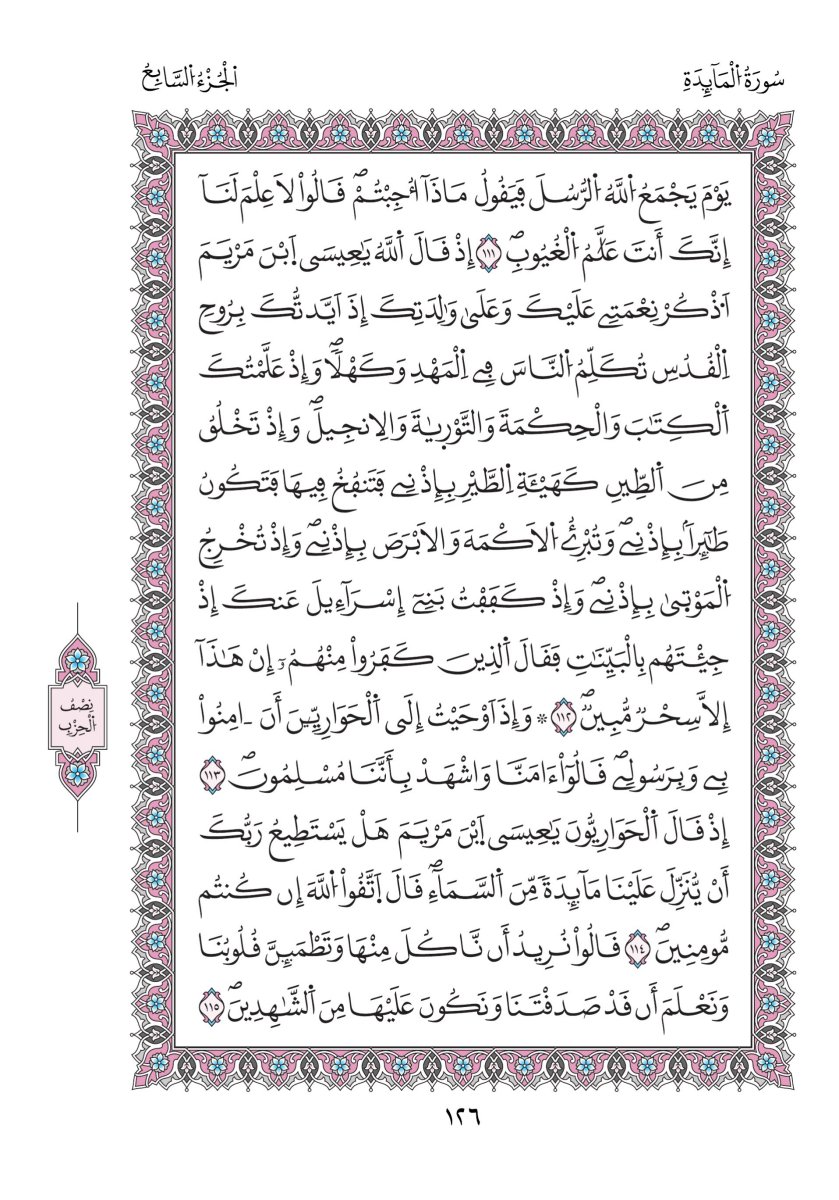 سُورَةُ الْمَآئِدَةِ
الْجُزْءُ السَّابِعُ
يَوْمَ يَجْمَعُ اُللَّهُ اُلرُّسُلَ فَيَقُولُ مَاذَآ أُجِبْتُمْۖ قَالُواْ لَا عِلْمَ لَنَآ
إِنَّكَ أَنتَ عَلَّٰمُ اُلْغُيُوبِۖ ١١١ إِذْ قَالَ اَللَّهُ يَٰعِيسَى اَبْنَ مَرْيَمَ
اَذْكُرْ نِعْمَتِے عَلَيْكَ وَعَلَىٰ وَٰلِدَتِكَ إِذَ اَيَّدتُّكَ بِرُوحِ
اِلْقُدُسِ تُكَلِّمُ اُلنَّاسَ فِے اِلْمَهْدِ وَكَهْلاٗۖ وَإِذْ عَلَّمْتُكَ
اَلْكِتَٰبَ وَالْحِكْمَةَ وَالتَّوْرِيٰةَ وَالِانجِيلَۖ وَإِذْ تَخْلُقُ
مِنَ اَلطِّينِ كَهَيْـَٔةِ اِلطَّيْرِ بِإِذْنِے فَتَنفُخُ فِيهَا فَتَكُونُ
طَٰٓئِراَۢ بِإِذْنِےۖ وَتُبْرِۓُ اُلَاكْمَهَ وَالَابْرَصَ بِإِذْنِےۖ وَإِذْ تُخْرِجُ
اُلْمَوْتِىٰ بِإِذْنِےۖ وَإِذْ كَفَفْتُ بَنِےٓ إِسْرَآءِيلَ عَنكَ إِذْ
جِئْتَهُم بِالْبَيِّنَٰتِ فَقَالَ اَلذِينَ كَفَرُواْ مِنْهُمُۥٓ إِنْ هَٰذَآ
إِلَّا سِحْرٞ مُّبِينٞۖ ١١٢ ۞ وَإِذَ اَوْحَيْتُ إِلَى اَلْحَوَارِيِّـۧنَ أَنَ ـامِنُواْ
بِے وَبِرَسُولِےۖ قَالُوٓاْ ءَامَنَّا وَاشْهَدْ بِأَنَّنَا مُسْلِمُونَۖ ١١٣
إِذْ قَالَ اَلْحَوَارِيُّونَ يَٰعِيسَى اَبْنَ مَرْيَمَ هَلْ يَسْتَطِيعُ رَبُّكَ
أَنْ يُّنَزِّلَ عَلَيْنَا مَآئِدَةٗ مِّنَ اَلسَّمَآءِۖ قَالَ اَتَّقُواْ اُللَّهَ إِن كُنتُم
مُّومِنِينَۖ ١١٤ قَالُواْ نُرِيدُ أَن نَّاكُلَ مِنْهَا وَتَطْمَئِنَّ قُلُوبُنَا
وَنَعْلَمَ أَن قَدْ صَدَقْتَنَا وَنَكُونَ عَلَيْهَا مِنَ اَلشَّٰهِدِينَۖ ١١٥
نِصْفُ
اَلْحِزْبِ
١٢٦